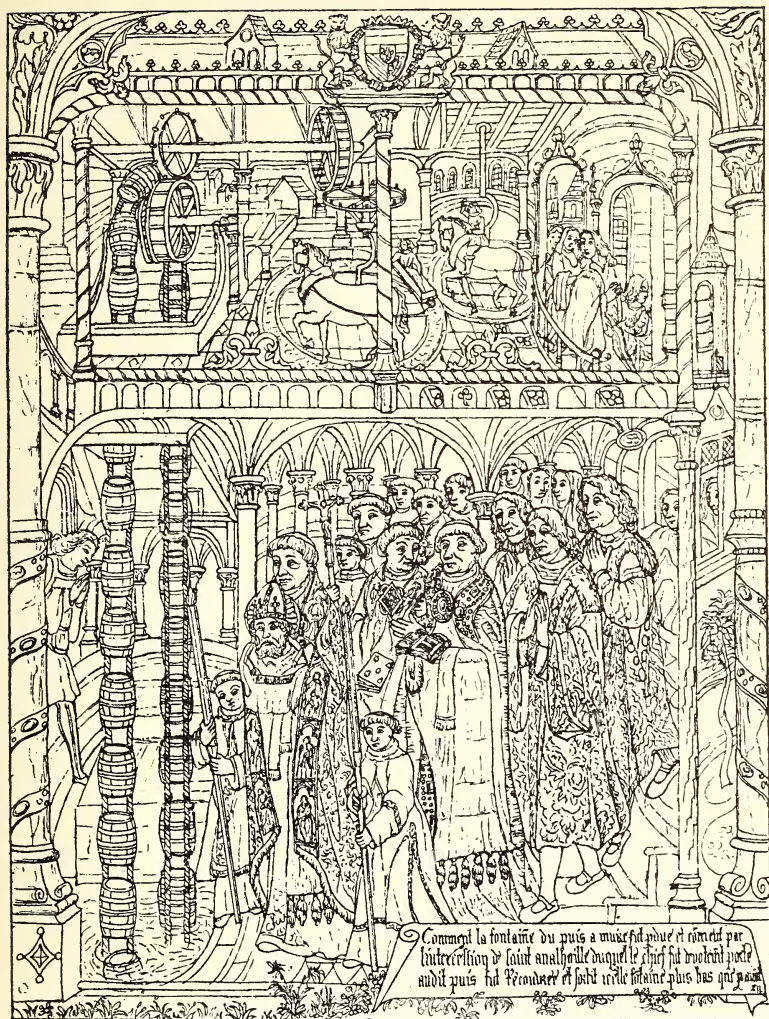 Comment la fontaine du puis a muire fut pdue et cōment par
l'intercession de saint anathoille duquel le chief fut devotemt porte
audit puis fut Recouvree et sortit icelle fontaine plus bas que